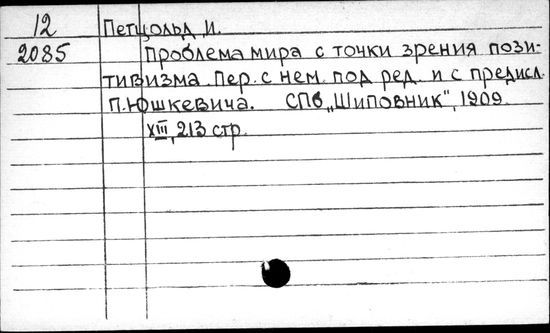 12 Петцольд И.
2085 Проблема мира с точки зрения пози-
тивизма. Пер. с нем. под ред. и с предисл.
П. Юшкевича. СПб „Шиповник", 1909.
XIII, 213 стр.